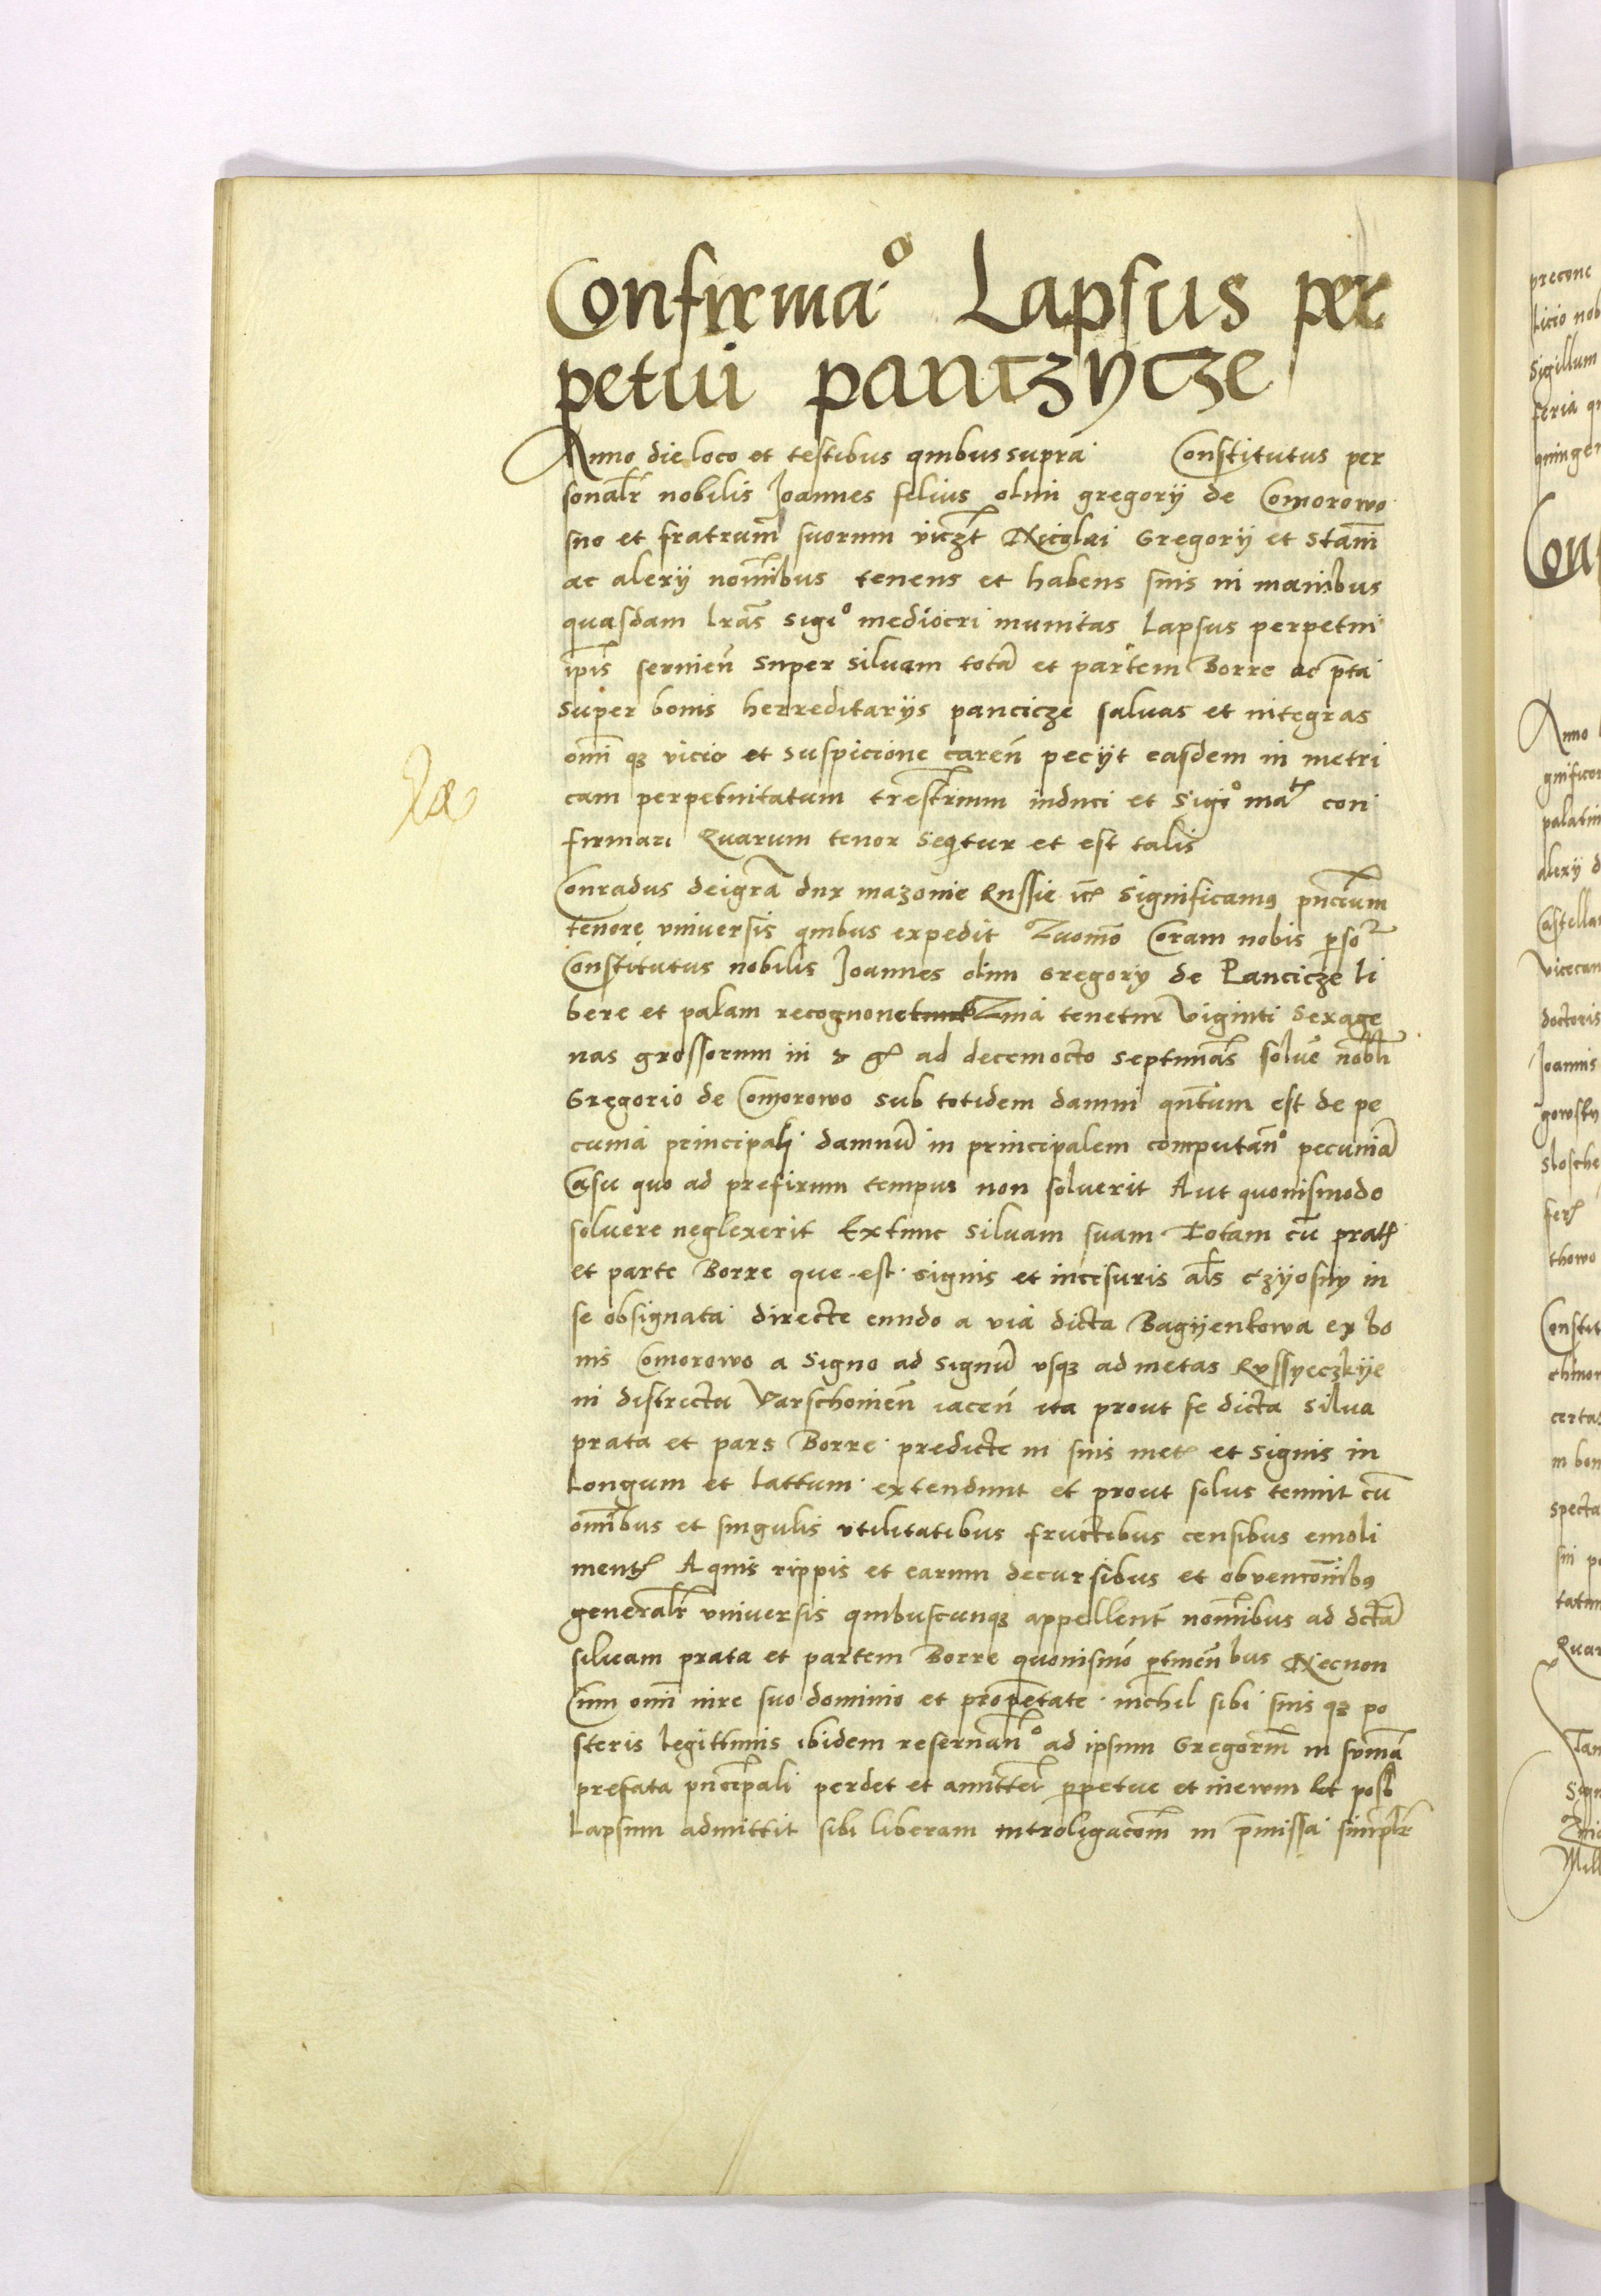 Confirmaᵒ Lapsus per
petui pantzÿcze
Anno die loco et testibus quibus supra Constitutus per
sonalr̄ nobilis Joannes filius olim gregorÿ de Comorowo
suo et fratrum suorum viczt Nicolai Gregorÿ et Stani
ac alexÿ nomībus tenens et habens suis in manibus
quasdam lrās sigiᵒ mediocri munitas Lapsus perpetui
ip̄is seruien̄ super siluam totā et partem Borre ac p̄ta
super bonis herreditarÿs pancicze saluas et integras
omī qz vicio et suspicione caren̄ pecÿt easdem in metri
cam perpetuitatum trēstrium induci et Sigiᵒ
con
firmari Quarum tenor Seqitur et est talis
Conradus dei grā dux mazouie Russie
Significamus pn̄cium
tenore vniuersis quibus expedit
Coram nobis
Constitutus nobilis Joannes olim Gregorÿ de Pancicze li
bere et palam
tenetur Viginti Sexage
nas grossorum in
ad decemocto septimās soluē nobli
Gregorio de Comorowo sub totidem damni qn̄tum est de pe
cunia principali damnū in principalem computan̄ᵒ pecuniā
Casu quo ad prefixum tempus non soluerit Aut quouismodo
soluere neglexerit Extunc siluam suam Totam cū prat
et parte Borre que est signis et incisuris als czÿosnÿ in
se obsignata directe eundo a via dicta Bagÿenkowa ex bo
nis Comorowo a Signo ad signū vsqz ad metas Russyeczkÿe
in districtu Varschouien̄ iacen̄ ita prout se dicta silua
prata et pars Borre predicte in suis met et signis in
Longum et lattum extendunt et prout solus tenuit cū
omībus et singulis vtilitatibus fructibus censibus emoli
ment Aquis rippis et earum decursibus et obuencōnibus
generalr̄ vniuersis quibuscunqz appellent̄ nomībus ad dctā
siluam prata et partem Borre quouismō ptinen̄bus Necnon
Cum omī iure suo dominio et proprietate nichil sibi suis qz po
steris legittimis ibidem reseruan̄ᵒ ad ipsum Gregoriū in sumā
prefata prīncipali perdet et amittet ppetue et ineuum
post
Lapsum admittit sibi liberam introligacōm in p̄missa simplr̄